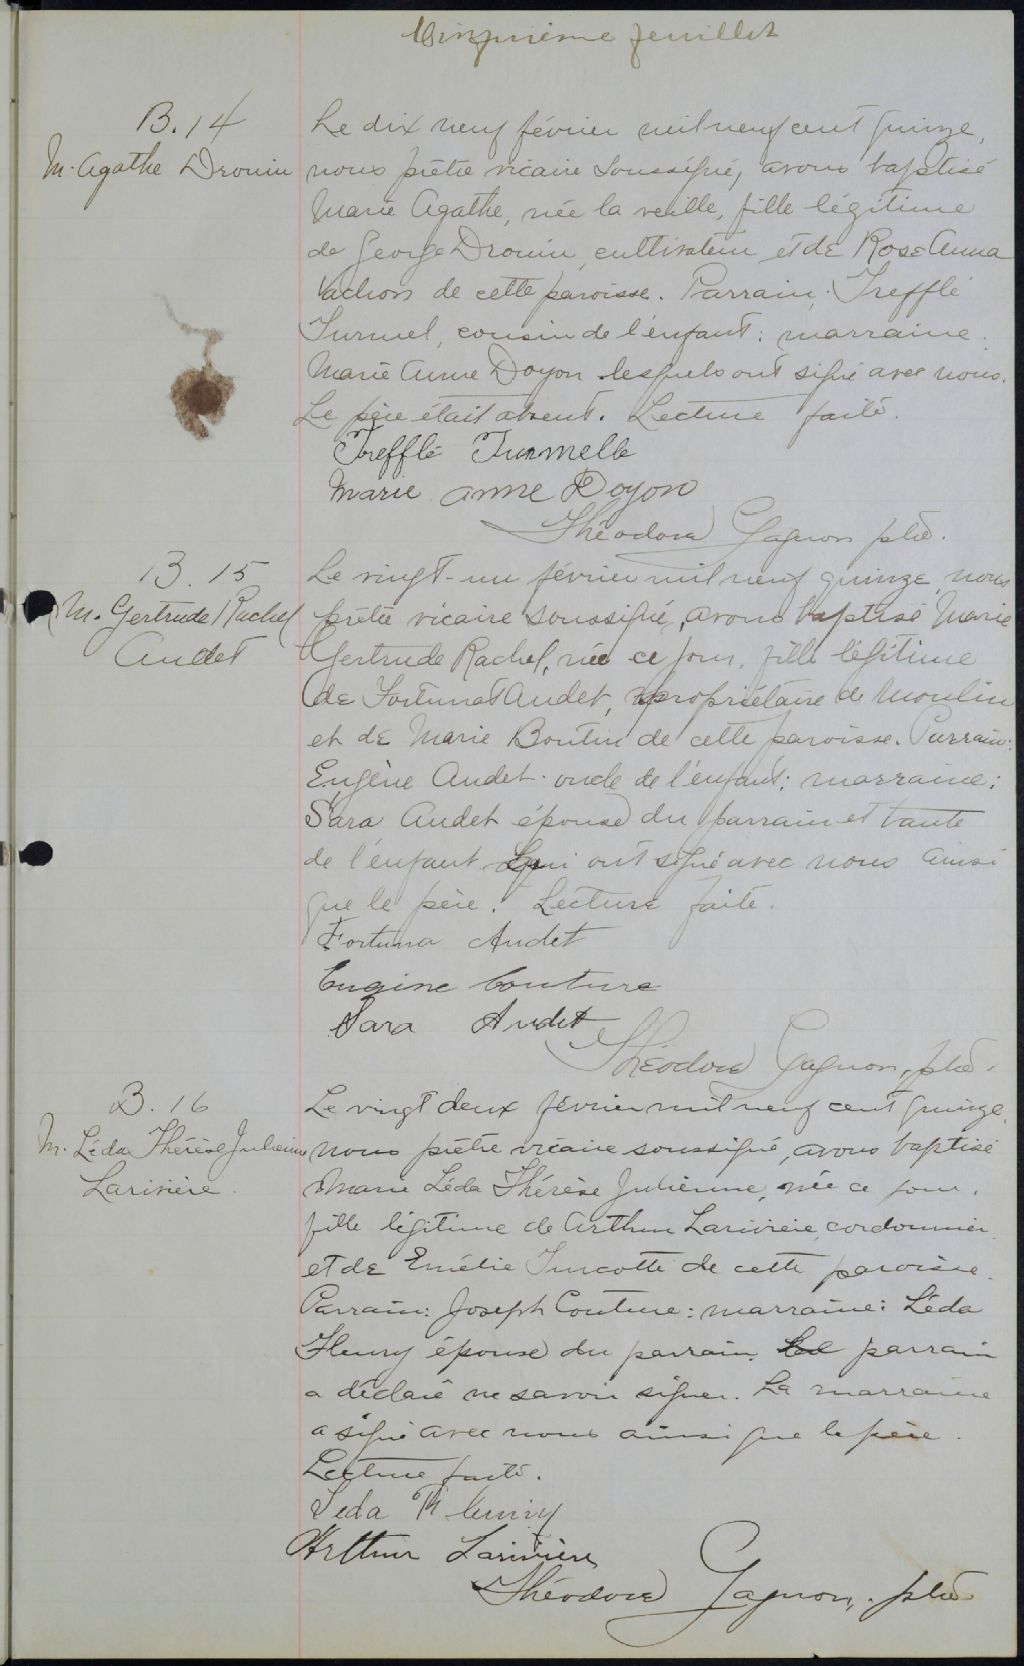 Cinquième feuillet
B. 14
M. Agathe Drouin
Le dix neuf février mil neuf cent quinze,
nous prêtre vicaire soussigné, avons baptisé
Marie Agathe, née la veille, fille légitime
de George Drouin, cultivateur et de Rose Anna
Vachon de cette paroisse. Parrain: Treffle
Turmel, cousin de l'enfant: marraine:
Marie Anne Doyon lesquels ont signé avec nous.
Le père était absent. Lecture faite.
Treffle Turmelle
Marie anne Doyon
Théodore Gagnon ptre.
B. 15
M. Gertrude Rachel
Audet
Le vingt-un février mil neuf quinze, nous
prêtre vicaire soussigné, avons baptisé Marie
Gertrude Rachel, née ce jour, fille légitime
de Fortunat Audet, propriétaire de Moulin
et de Marie Boutin de cette paroisse. Parrain:
Eugène Audet oncle de l'enfant; marraine:
Sara Audet épouse du parrain et tante
de l'enfant qui ont signé avec nous ainsi
que le père. Lecture faite.
Fortuna Audet
Eugine Couture
Sara Audet
Théodore Gagnon, ptre.
B. 16
M. Léda Thérèse Julienne
Larivière.
Le vingt deux février mil neuf cent quinze,
nous prêtre vicaire soussigné, avons baptisé
Marie Léda Thérèse Julienne, née ce jour,
fille légitime de Arthur Larivière, cordonnier
et de Emélie Turcotte de cette paroisse.
Parrain: Joseph Couture: marraine: Léda
Fleury épouse du parrain. Le parrain
a déclaré ne savoir signer. La marraine
a signé avec nous ainsi que le père.
Lecture faite.
Leda Fleury
Arthur Lariviere
Théodore Gagnon, ptre